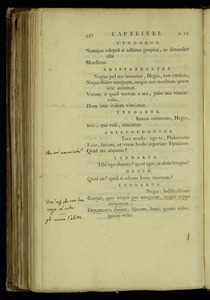 432 CAPTEIVEI. v. 72
TYNDARUS.
Namque edepol si adbites propius, os denasabit tibi
Mordicus.
ARISTOPHONTES.
Neque pol me insanum, Hegio,
Neque fuisse umquam, neque esse morbum quem istic autumat.
Verum si quid metuis a me, jube me vinciri: volo,
Dum istic itidem vinciatur.
TYNDARUS.
Immo enimvero, Hegio,
Istic, qui volt, vinciatur.
ARISTOPHONTES.
Tace modo: ego te, Philocrates
False, faciam, ut verus hodie reperiare Tyndarus.
Quid mi abnutas?
TYNDARUS.
Tibi ego abnuto? quid agat, si absis longius?
HEGIO.
Quid ais? quid si adeam hunc insanum?
TYNDARUS.
Nugas: ludificabitur.
Garriet, quoi neque pes umquam, neque caput compareat.
Ornamenta absunt: Ajacem, hunc quom vides, ipsum vides.